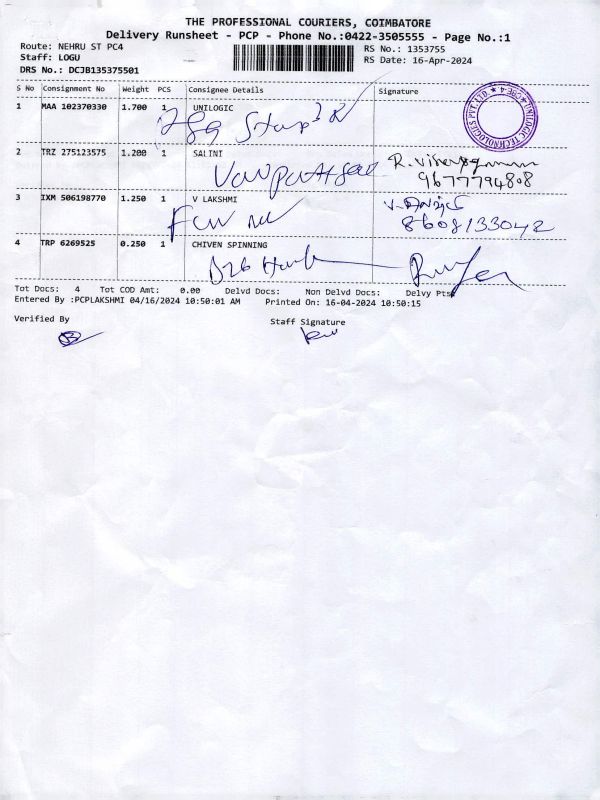 THE PROFESSIONAL COURIERS, COIMBATORE
Delivery Runsheet - PCP - Phone No.:0422-3505555 - Page No.:1
Route: NEHRU ST PC4
RS No.: 1353755
Staff: LOGU
RS Date: 16-Apr-2024
DRS No.: DCJB135375501
S No Consignment No Weight PCS Consignee Details Signature
1 MAA 102370330 1.700 1 UNILOGIC
UNILOGIC TECHNOLOGIES PVT. LTD. ★ CBE-4 ★
2 TRZ 275123575 1.200 1 SALINI
9677794808
3 IXM 506198770 1.250 1 V LAKSHMI
8608133042
4 TRP 6269525 0.250 1 CHIVEN SPINNING
Tot Docs: 4 Tot COD Amt: 0.00 Delvd Docs: Non Delvd Docs: Delvy Pts:
Entered By :PCPLAKSHMI 04/16/2024 10:50:01 AM Printed On: 16-04-2024 10:50:15
Verified By
Staff Signature